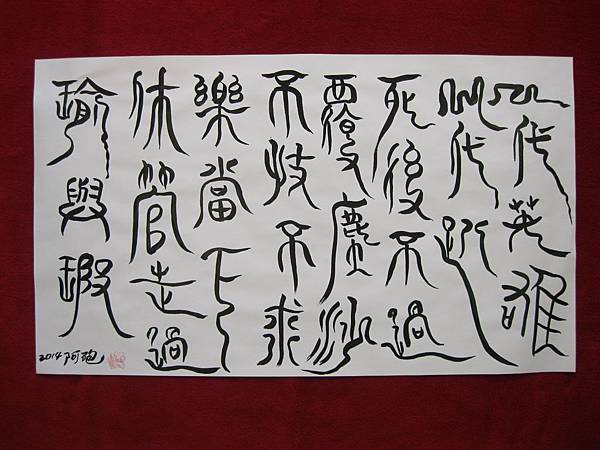 代英雄
代
死後不過
覆塵沙
不忮不求
樂當下
休管走過
瑜與瑕
2014 阿